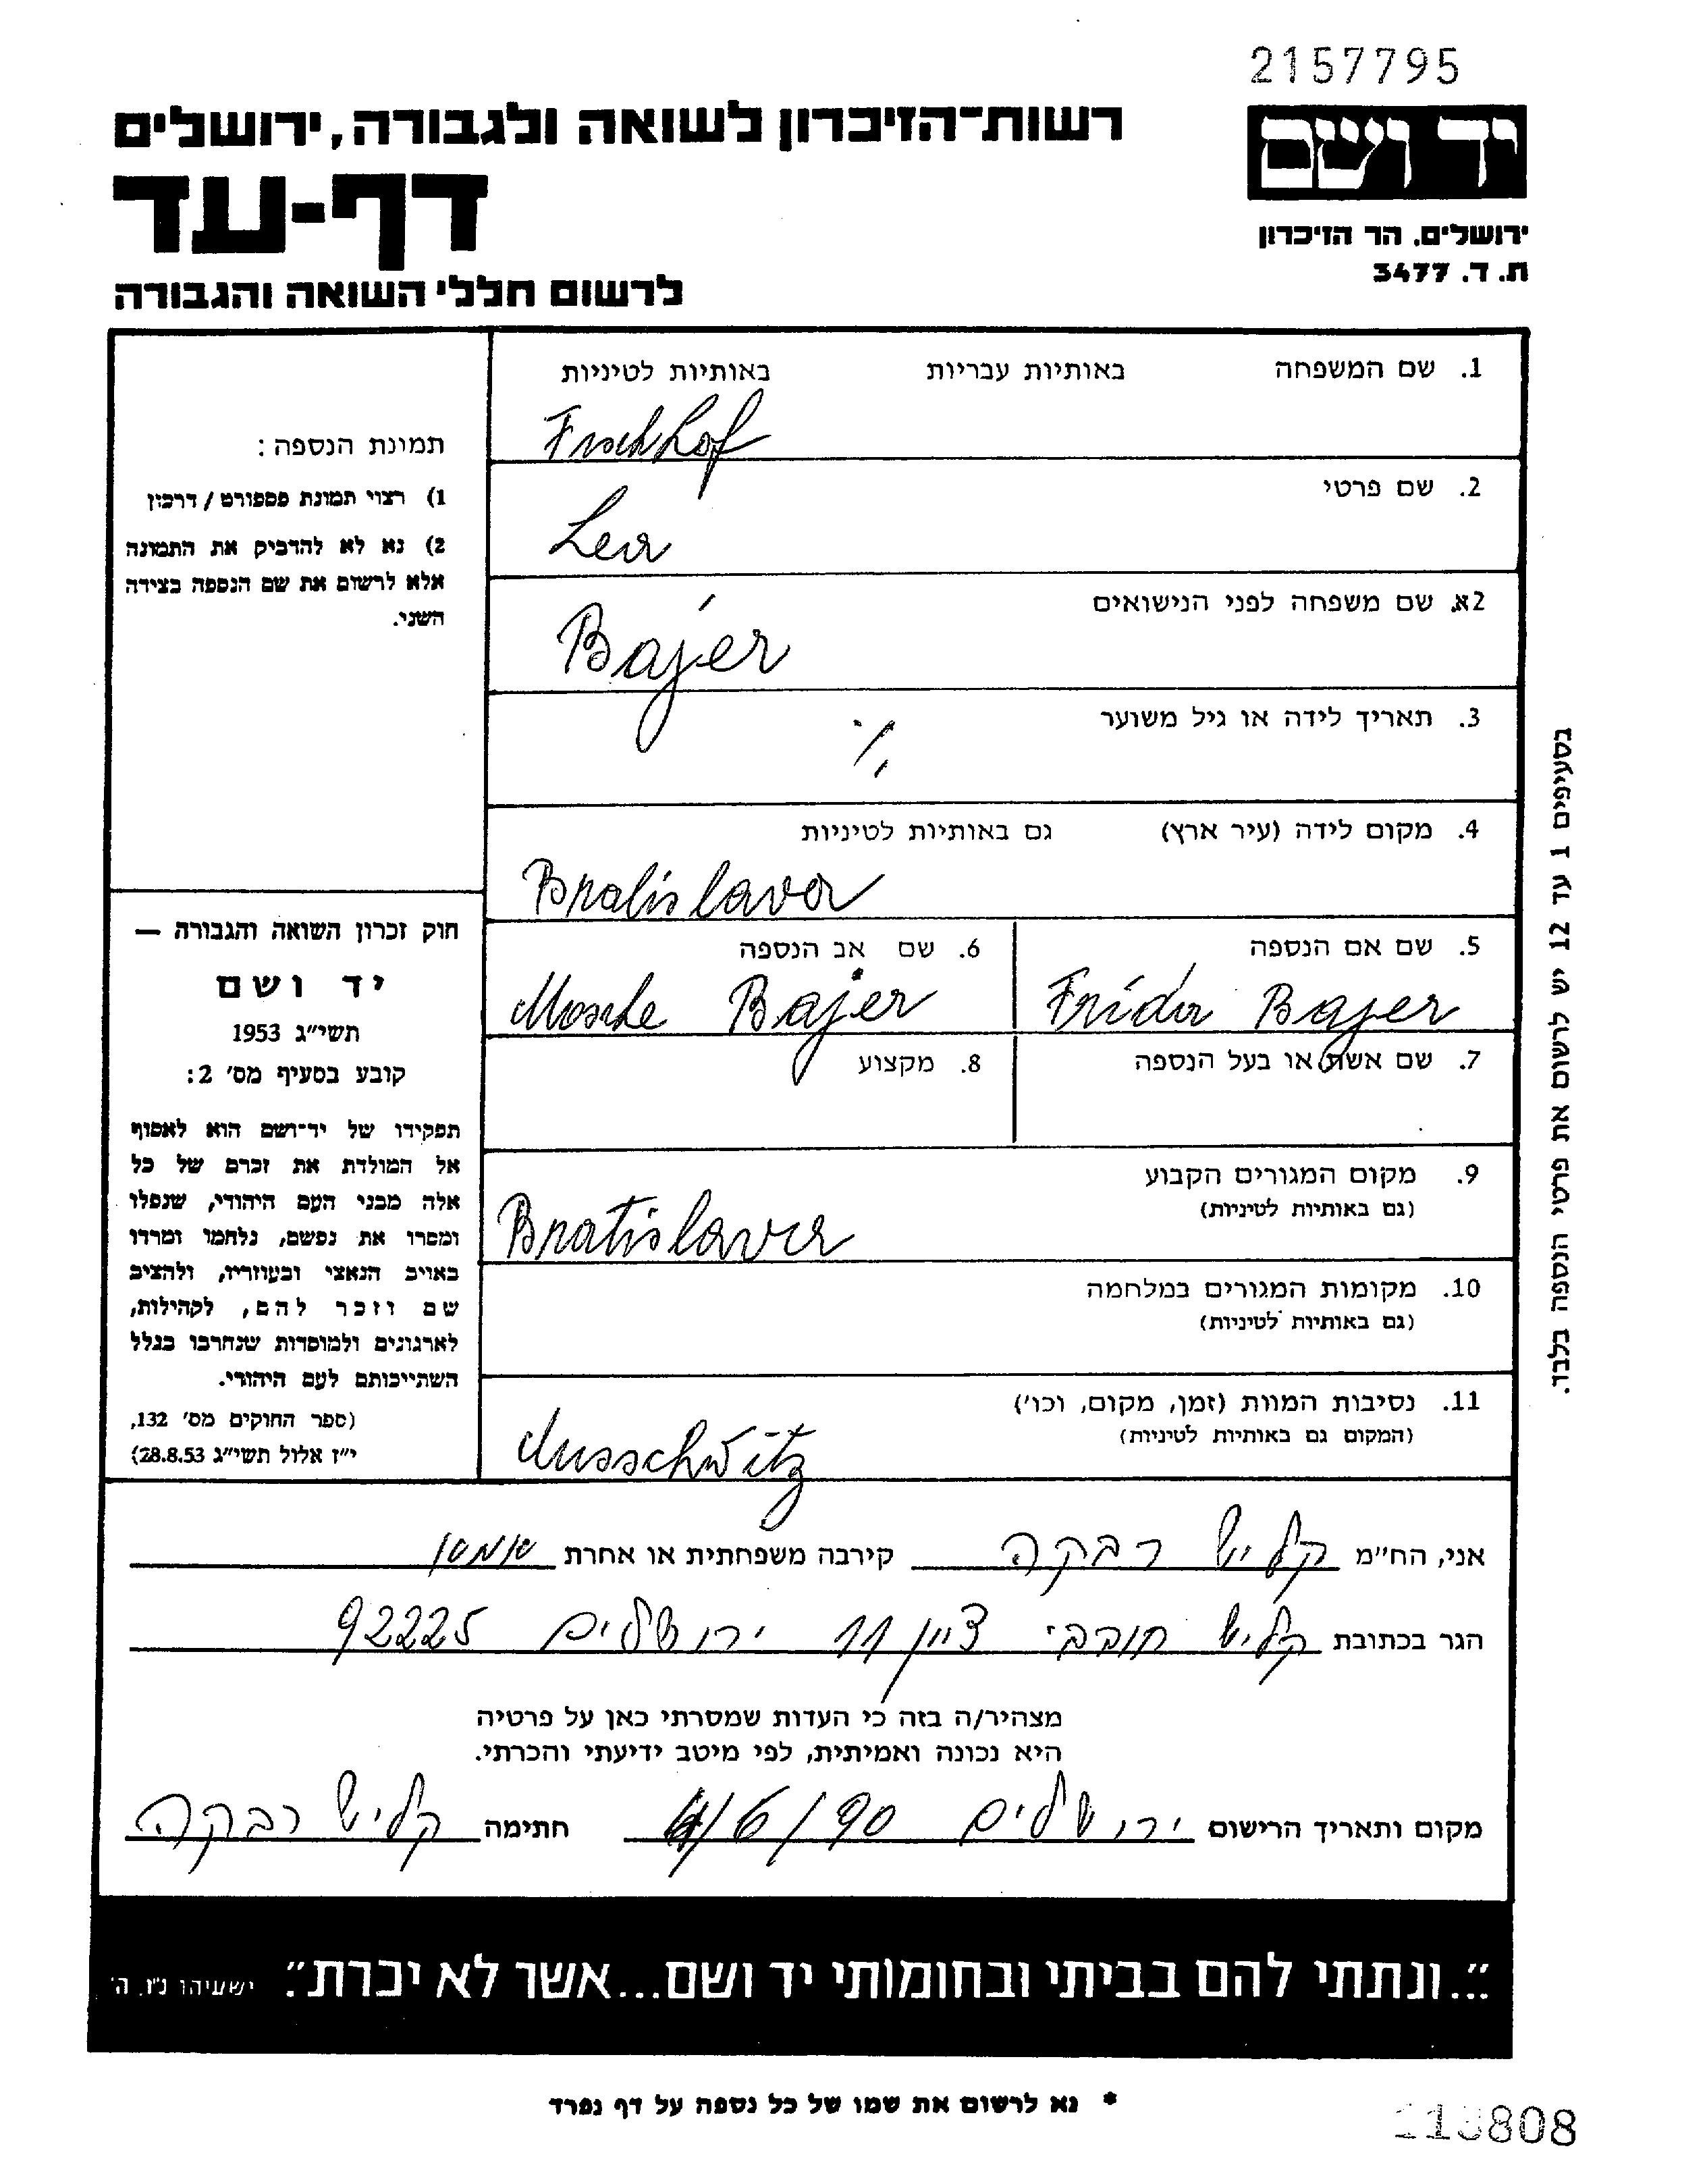 2157795
רשות-הזיכרון לשואה ולגבורה, ירושלים
יד ושם
דף-עד
ירושלים, הר הזיכרון
ת. ד. 3477
לרשום חללי השואה והגבורה
1. שם המשפחה באותיות עבריות באותיות לטיניות
2. שם פרטי
Lea
2א. שם משפחה לפני הנישואים
Bajer
3. תאריך לידה או גיל משוער
4. מקום לידה (עיר ארץ) גם באותיות לטיניות
Bratislava
5. שם אם הנספה
Frida Bajer
6. שם אב הנספה
Mosche Bajer
7. שם אשת או בעל הנספה
8. מקצוע
9. מקום המגורים הקבוע
(גם באותיות לטיניות)
Bratislava
10. מקומות המגורים במלחמה
(גם באותיות לטיניות)
11. נסיבות המוות (זמן, מקום, וכו')
(המקום גם באותיות לטיניות)
Ausschwitz
תמונת הנספה:
1) רצוי תמונת פספורט / דרכון
2) נא לא להדביק את התמונה
אלא לרשום את שם הנספה בצידה
השני.
חוק זכרון השואה והגבורה —
יד ושם
תשי"ג 1953
קובע בסעיף מס' 2:
תפקידו של יד-ושם הוא לאסוף
אל המולדת את זכרם של כל
אלה מבני העם היהודי, שנפלו
ומסרו את נפשם, נלחמו ומרדו
באויב הנאצי ובעוזריו, ולהציב
שם וזכר להם, לקהילות,
לארגונים ולמוסדות שנחרבו בגלל
השתייכותם לעם היהודי.
(ספר החוקים מס' 132,
י"ז אלול תשי"ג 28.8.53)
בסעיפים 1 עד 12 יש לרשום את פרטי הנספה בלבד.
אני, הח"מ קליש רבקה קירבה משפחתית או אחרת
הגר בכתובת קליש חובבי ציון 11 ירושלים 92225
מצהיר/ה בזה כי העדות שמסרתי כאן על פרטיה
היא נכונה ואמיתית, לפי מיטב ידיעתי והכרתי.
מקום ותאריך הרישום ירושלים 4/6/90 חתימה קליש רבקה
"...ונתתי להם בביתי ובחומותי יד ושם...אשר לא יכרת". ישעיהו נ"ו, ה'
* נא לרשום את שמו של כל נספה על דף נפרד